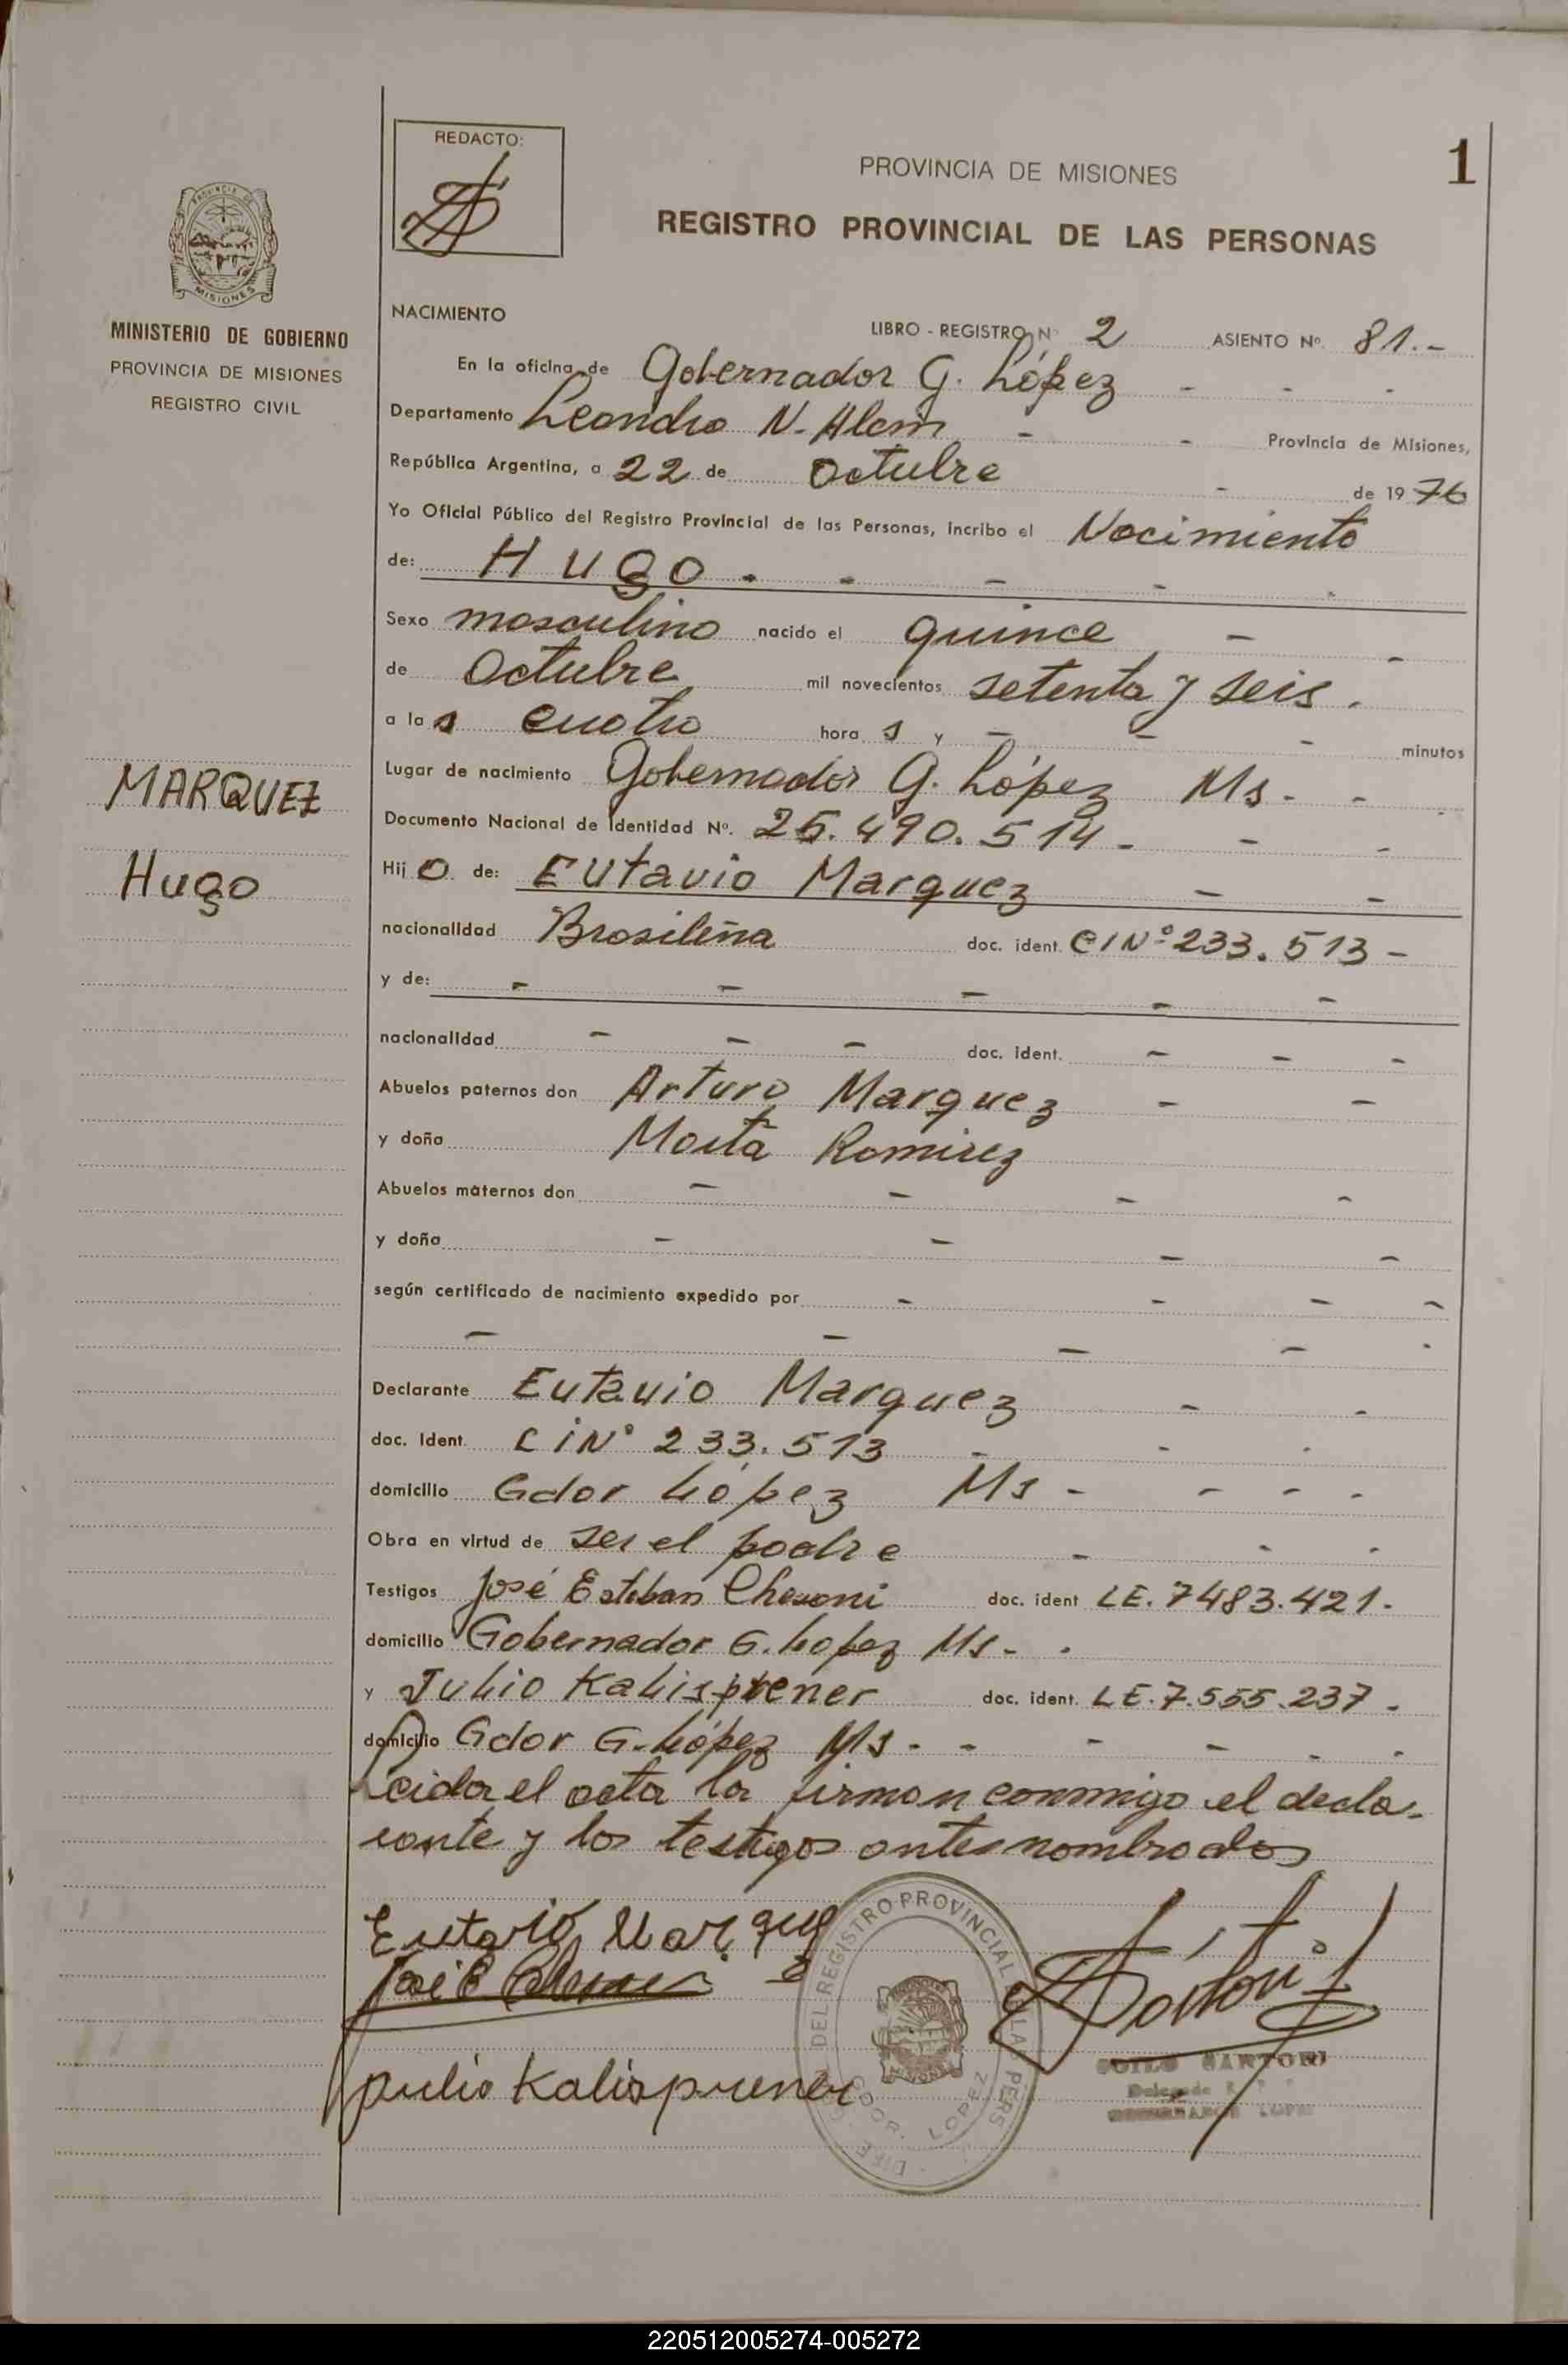 REDACTO:
1
PROVINCIA DE MISIONES
REGISTRO PROVINCIAL DE LAS PERSONAS
PROVINCIA DE
MISIONES
MINISTERIO DE GOBIERNO
PROVINCIA DE MISIONES
REGISTRO CIVIL
NACIMIENTO
LIBRO - REGISTRO Nº 2 ASIENTO Nº. 81.-
En la oficina de Gobernador G. López - - -
Departamento Leandro N. Alem - - Provincia de Misiones,
República Argentina, a 22 de Octubre - de 1976
Yo Oficial Público del Registro Provincial de las Personas, incribo el Nacimiento
de: HUGO. - - - -
Sexo masculino nacido el quince - -
de Octubre mil novecientos setenta y seis.
a las cuatro horas y - - - minutos
MARQUEZ
Hugo
Lugar de nacimiento Gobernador G. López Ms. - -
Documento Nacional de Identidad Nº. 25.490.514 - - -
Hijo de: Eutavio Marquez - -
nacionalidad Brasileña doc. ident. CI Nº 233.513 -
y de: - - - - -
nacionalidad - - - doc. ident. - - -
Abuelos paternos don Arturo Marquez - -
y doña Marta Ramirez
Abuelos maternos don - - - -
y doña - - - -
según certificado de nacimiento expedido por - - - -
- - - - -
Declarante Eutavio Marquez - -
doc. Ident. C i Nº 233.513 - - -
domicilio Gdor López Ms - - - -
Obra en virtud de ser el padre - - -
Testigos José Esteban doc. ident LE. 7483.421.
domicilio Gobernador G. Lopez Ms - .
y Julio Kalisprener doc. ident. LE. 7.555.237 -
domicilio Gdor G. López Ms - - - - - -
Leida el acta la firman conmigo el decla-
rante y los testigos antes nombrados
Eutavio Marquez
Julio Kalisprener
DEL REGISTRO PROVINCIAL LAS PERS
GDOR. LOPEZ
SARTORI
Delegado
220512005274-005272